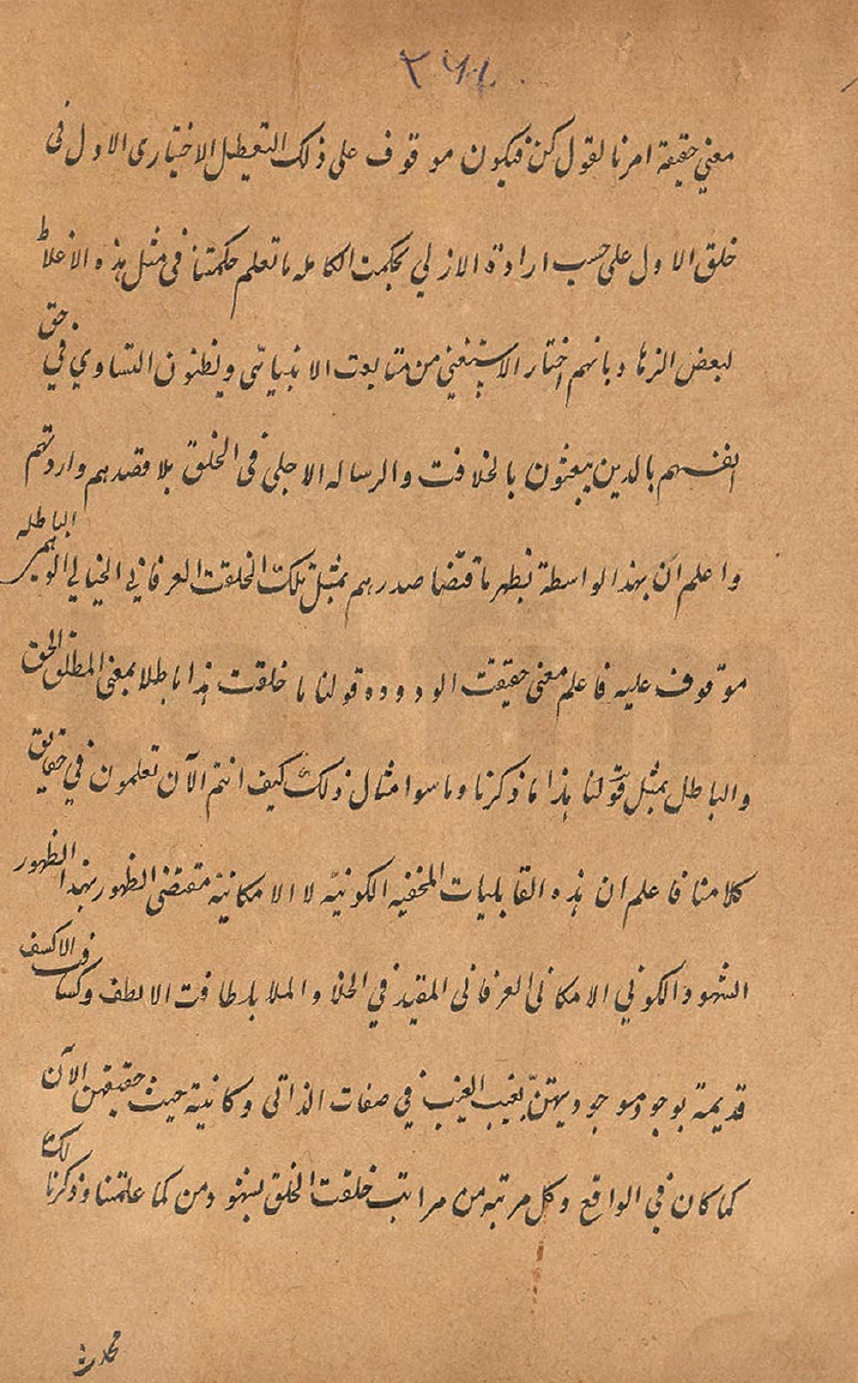 ٣٦٨
معني حقيقة امرنا لقول كن فيكون موقوف على ذلك التعطيل الاختياري الاول في
خلق الاول على حسب ارادة الازلي بحكمت الكامله ما تعلم حكمتنا في مثل هذه الاغلاط
لبعض الزهاد بانهم اختار الاستغني من متابعت الانبيائي ويظنون التساوي في حق
انفسهم بالدين يبعثون بالخلافت والرساله الاجلي في الخلق بلا قصدهم وارادتهم الباطله
واعلم ان بهذا الواسطة نظهر ما قتضا صدرهم بمثل تلك الخلقت العرفاني الخيالي الوهم
موقوف عليه فاعلم معني حقيقت الودوده قولنا ما خلقت هذا باطلا بمعني المطلق الحق
والباطل بمثل قولنا هذا ما ذكرنا وما سوا مثال ذلك كيف انتم الآن تعلمون في حقايق
كلامنا فاعلم ان هذه القابليات المخفيه الكونيّه لا الامكانية مقتضي الظهور بهذا الظهور
الشهود الكوني الامكاني العرفاني المقيد في الخلا والملا بلطافت الالطف وكسافت الاكسف
قديمة بوجود موجوديهتنّ بغيب الغيب في صفات الذاتي وكانية حيث حقيقهن الآن
كما كان في الواقع وكل مرتبه من مراتب خلقت الخلق بشهود من كما علمتنا وذكرنا لك